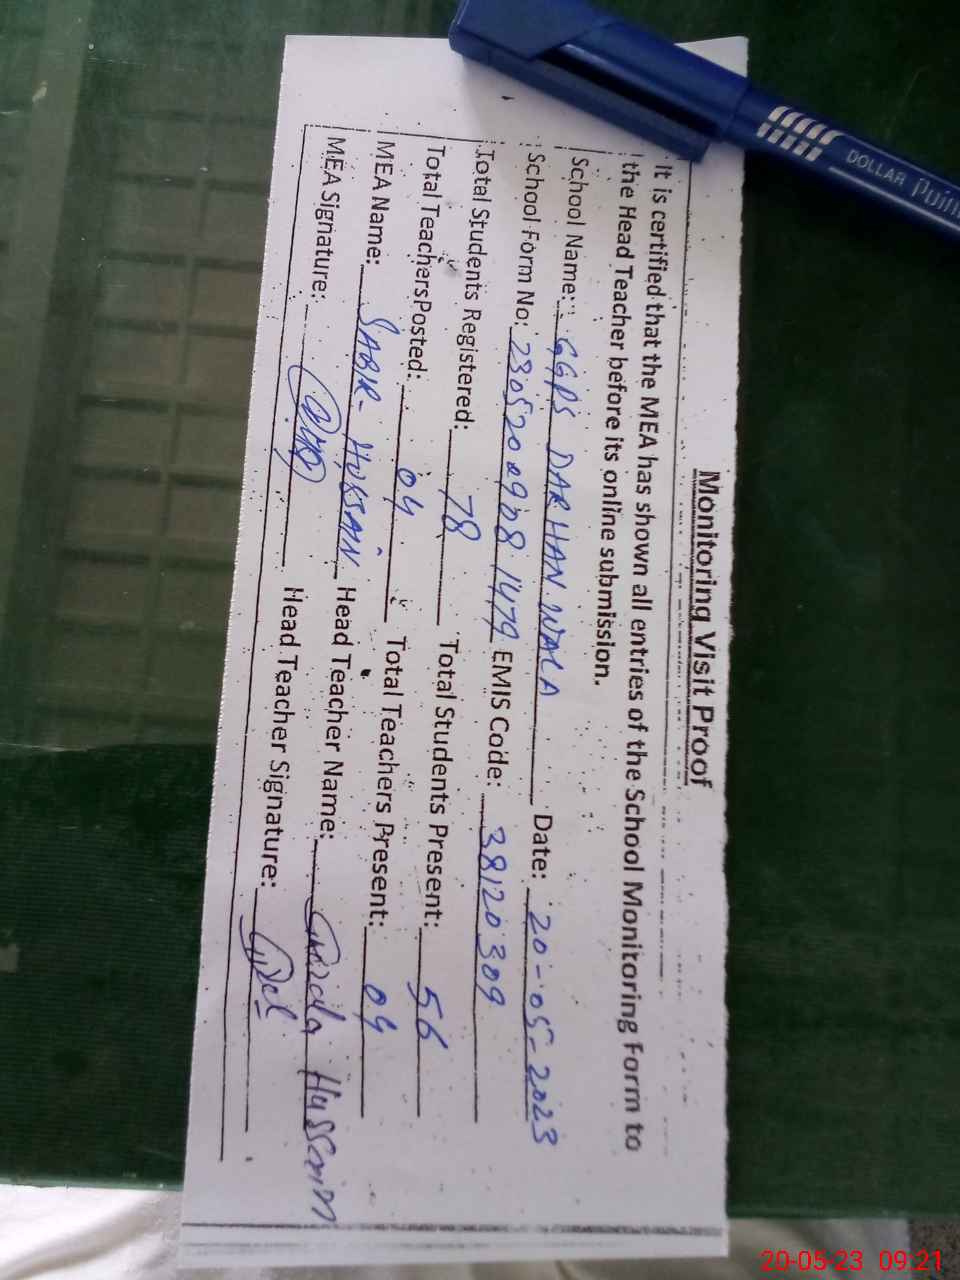 Monitoring Visit Proof
It is certified that the MEA has shown all entries of the School Monitoring Form to
the Head Teacher before its online submission.
School Name: GGPS DARHAN WALA Date: 20-05-2023
School Form No: 230520 1479 EMIS Code: 38120309
Total Students Registered: 78 Total Students Present: 56
Total Teachers Posted: 04 Total Teachers Present: 04
MEA Name: SABIR HUSSAIN Head Teacher Name: Hussain
MEA Signature: Head Teacher Signature:
DOLLAR Point
20-05-23 09:21